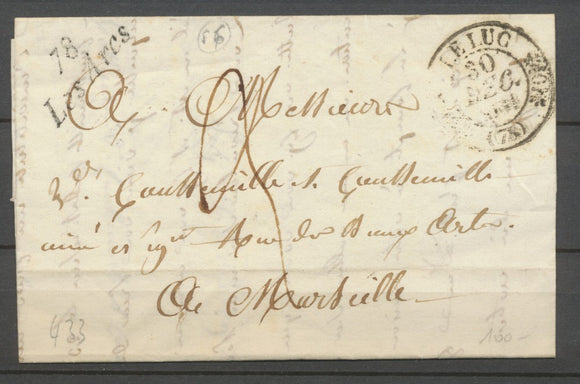 78
Les Arcs
56
LE LUG
30
DEC.
(78)
A Messieurs
Gautteville et Gautteville
ainé et Rue des Beaux Arts.
A Marseille
433
100 -